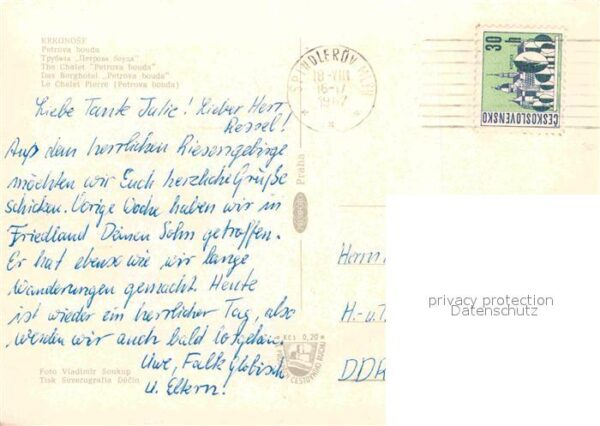 KRKONOŠE
Petrova bouda
Трубава „Петрова боуда"
The Chalet "Petrova bouda"
Das Berghotel „Petrova bouda"
Le Chalet Pierre (Petrova bouda)
Liebe Tante Julie! Lieber Herr
Ressel!
Aus dem herrlichen Riesengebirge
möchten wir Euch herzliche Grüße
schicken. Vorige Woche haben wir in
Friedland Deinen Sohn getroffen.
Er hat ebenso wie wir lange
Wanderungen gemacht. Heute
ist wieder ein herrlicher Tag, also
werden wir auch bald losgehen.
Uwe, Falk Globisch
u. Eltern!
Foto Vladimír Soukup
Tisk Severografia Děčín
Praha
Kčs 0,20
ŠPINDLERŮV MLÝN
18.VIII.
16-17
1967
30 h
ČESKOSLOVENSKO
Herrn
H.-u.
DDR
privacy protection
Datenschutz